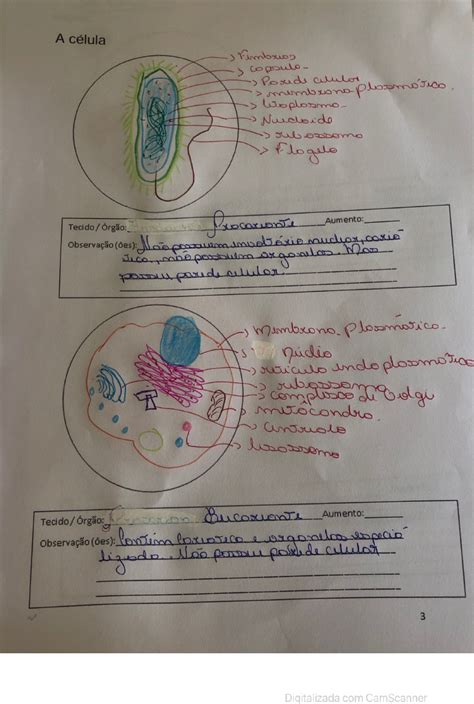 A célula
Fimbrias
capsula
Parede celular
membrana plasmática.
citoplasma
Nucloide
ribossomo
Flagelo
Tecido / Órgão: Procarionte Aumento:
Observação (ões): Não possuem envoltório nuclear, cario
teca, não possuem organelas. Mas
possui parede celular
Membrana Plasmática.
Núcleo
retículo endoplasmático
ribossomo
complexo de Golgi
mitocôndria
centríolo
lisossomo
Tecido / Órgão: Eucarionte Aumento:
Observação (ões): Contém carioteca e organelas especia
lizada. Não possui parede celular
3
Digitalizada com CamScanner